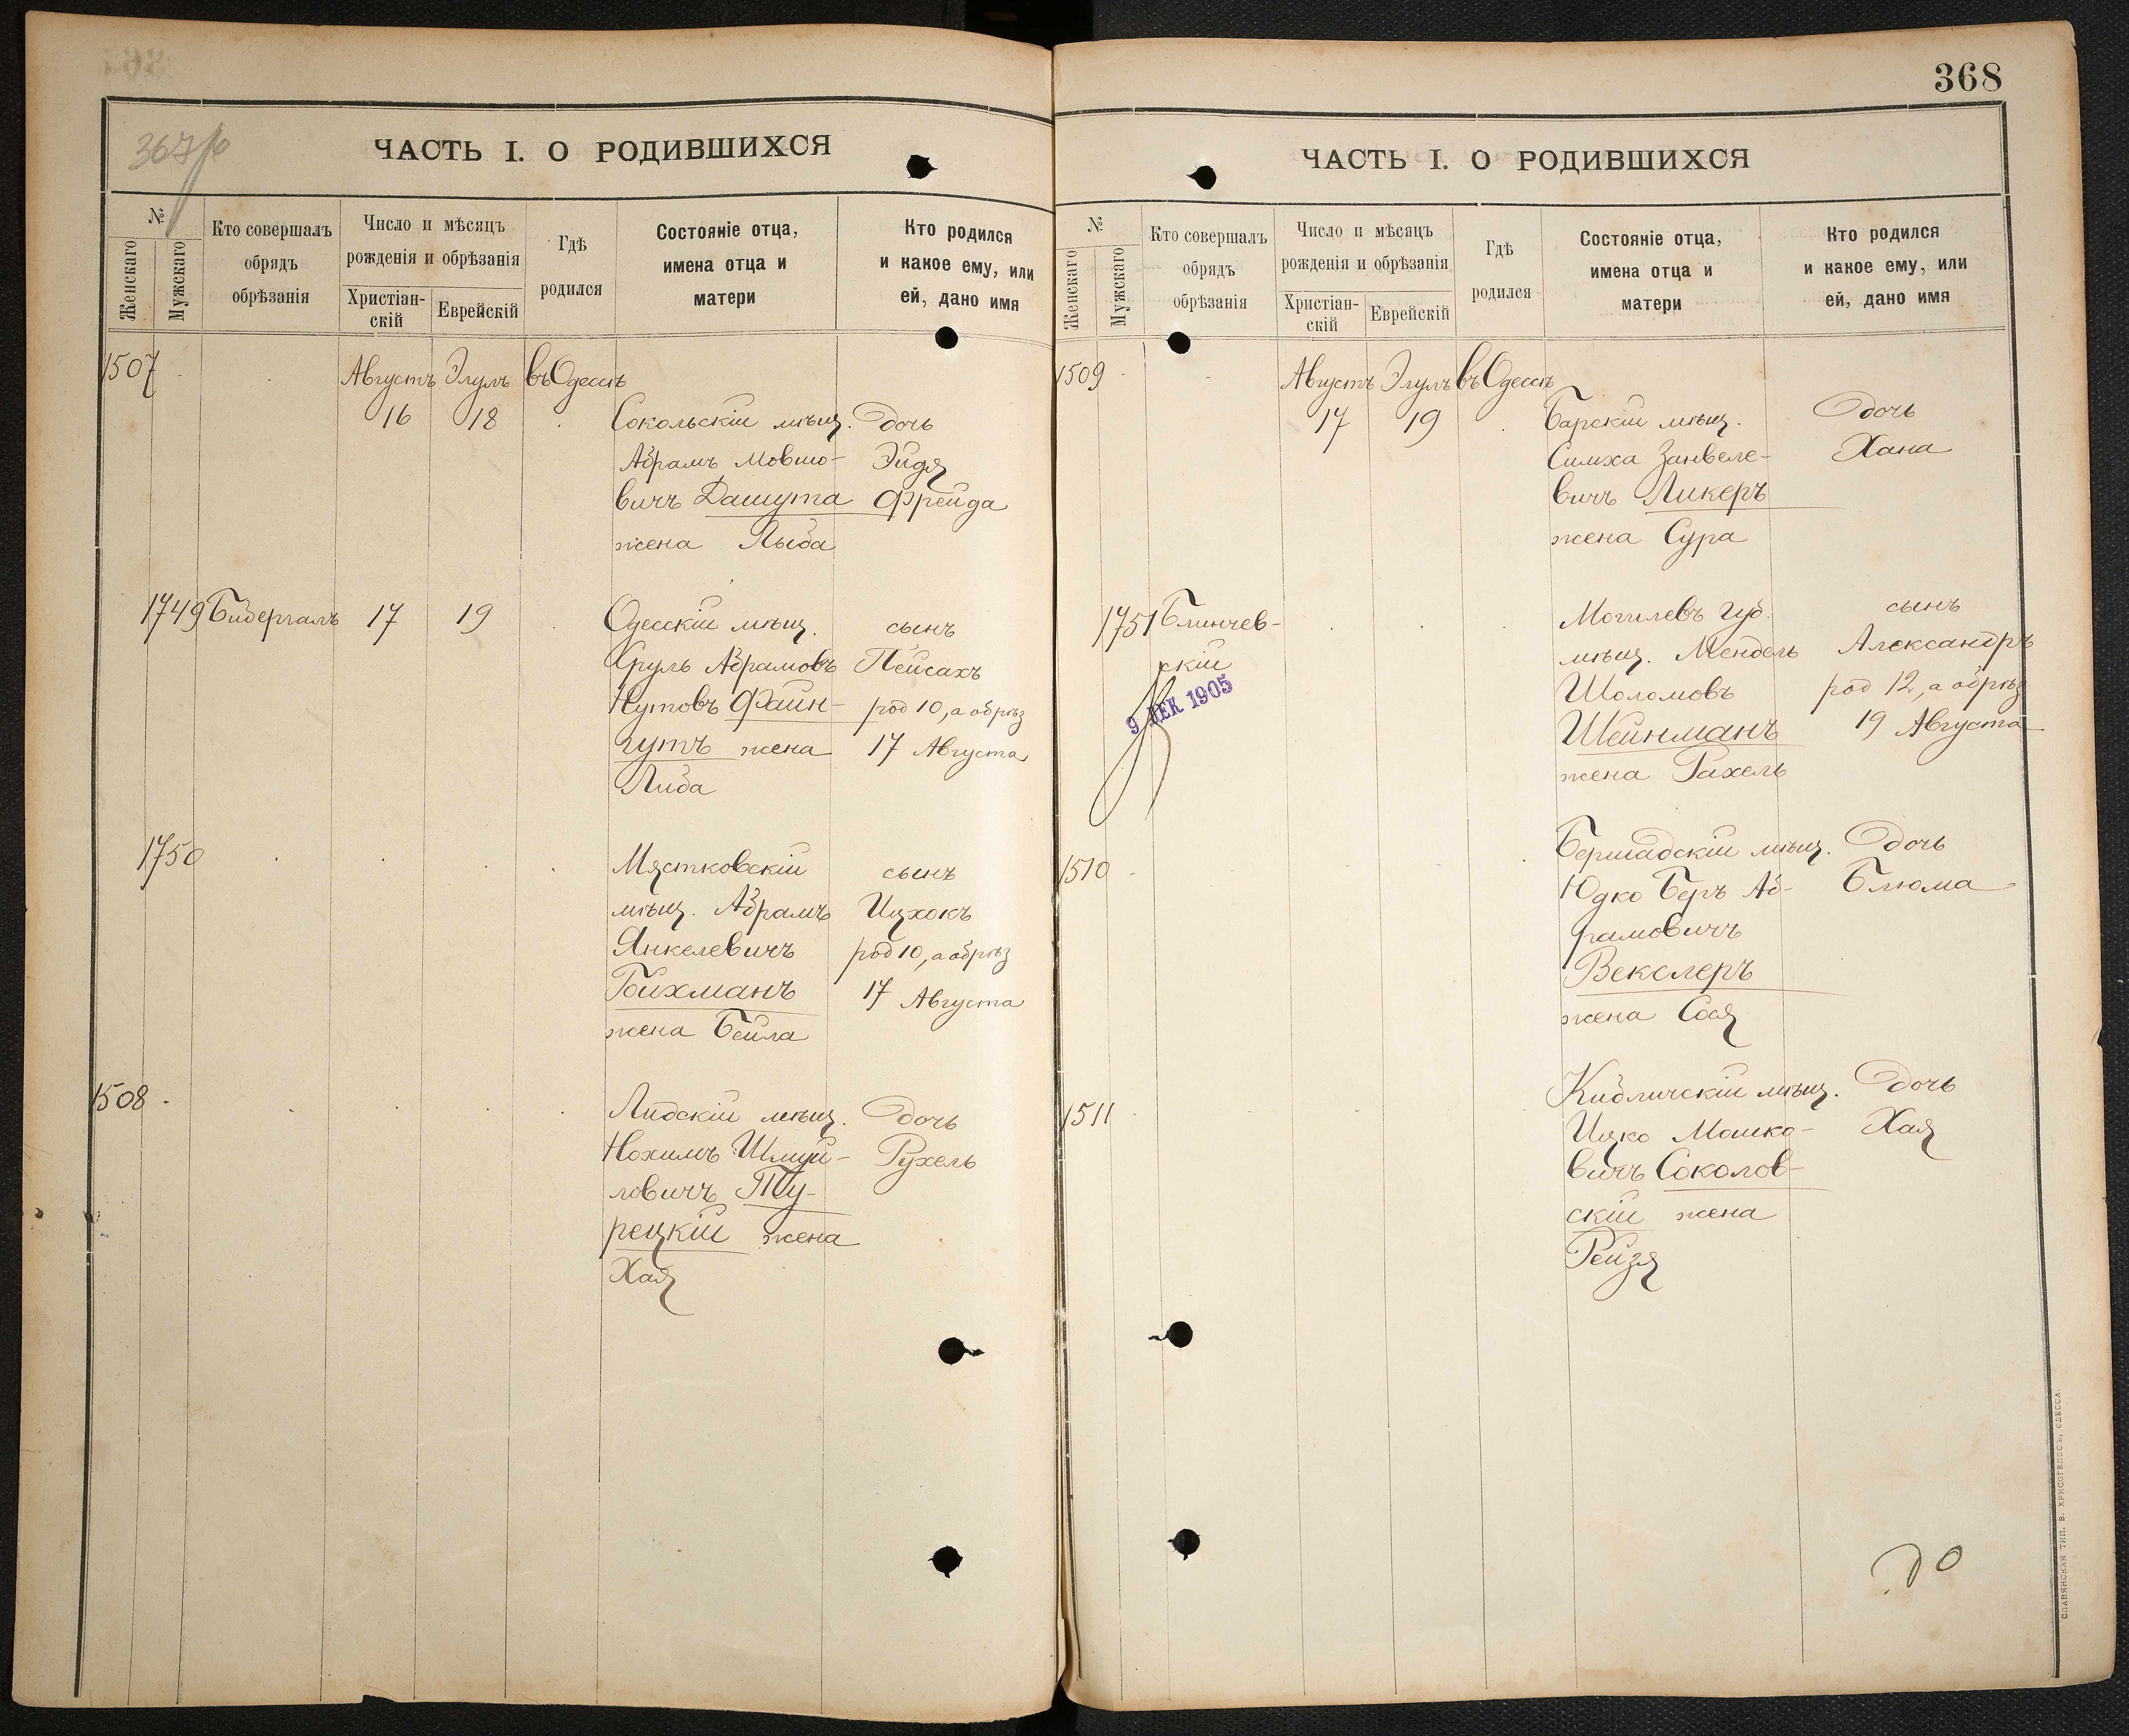 367 об
ЧАСТЬ I. О РОДИВШИХСЯ
№
Женскаго
Мужскаго
Кто совершалъ
обрядъ
обрѣзанія
Число и мѣсяцъ
рожденія и обрѣзанія
Христіан-
скій
Еврейскій
Гдѣ
родился
Состояніе отца,
имена отца и
матери
Кто родился
и какое ему, или
ей, дано имя
1507 Августъ Элулъ въ Одессѣ
16 18 Сокольскій мѣщ. дочь
Абрамъ Мовшо- Эйдя
вичъ Дашута Фрейда
жена Лыба
1749 Бидергалъ 17 19 Одесскій мѣщ. сынъ
Сруль Абрамовъ Пейсахъ
Нутовъ Файн- род 10, а обрѣз
гутъ жена 17 Августа
Либа
1750 Мястковскій сынъ
мѣщ. Абрамъ Ицхокъ
Янкелевичъ род 10, а обрѣз
Гойхманъ 17 Августа
жена Бейла
1508 Лидскій мѣщ. дочь
Нохимъ Шмуй- Рухель
ловичъ Ту-
рецкій жена
Хая
368
ЧАСТЬ I. О РОДИВШИХСЯ
№
Женскаго
Мужскаго
Кто совершалъ
обрядъ
обрѣзанія
Число и мѣсяцъ
рожденія и обрѣзанія
Христіан-
скій
Еврейскій
Гдѣ
родился
Состояніе отца,
имена отца и
матери
Кто родился
и какое ему, или
ей, дано имя
1509 Августъ Элулъ въ Одессѣ
17 19 Барскій мѣщ. дочь
Симха Занвеле- Хана
вичъ Ликеръ
жена Сура
1751 Блинчев- Могилевъ губ. сынъ
скій мѣщ. Мендель Александръ
9 ДЕК 1905 Шоломовъ род 12, а обрѣз
Шейнманъ 19 Августа
жена Рахель
1510 Бершадскій мѣщ. дочь
Юдко Беръ Аб- Блюма
рамовичъ
Векслеръ
жена Сося
1511 Кибличскій мѣщ. дочь
Ицко Мошко- Хая
вичъ Соколов-
скій жена
Рейзя
СЛАВЯНСКАЯ ТИП. В. ХРИСОГЕЛОСЪ, ОДЕССА.